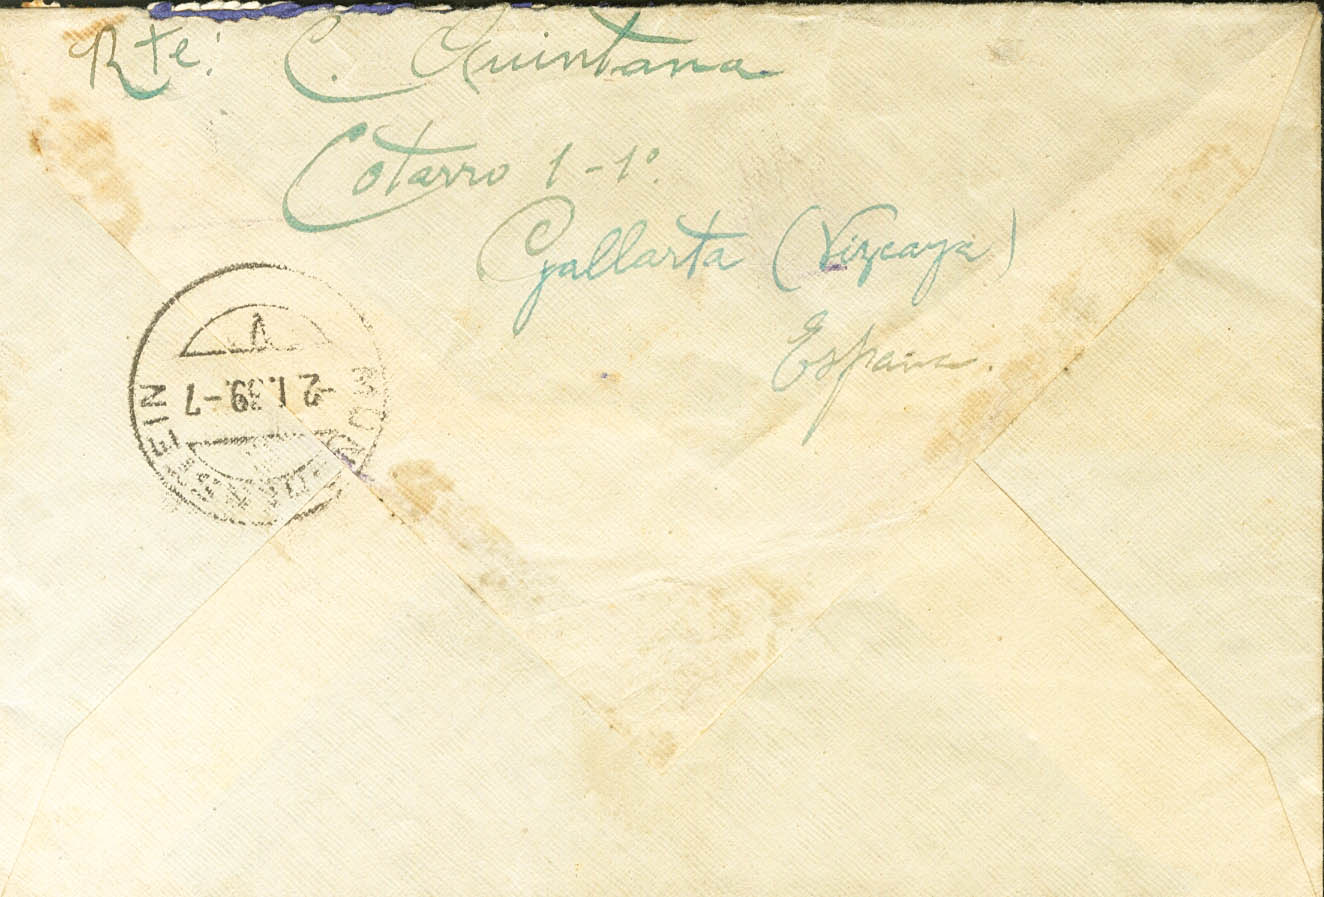 Rte: C. Quintana
Cotarro 1-1º.
Gallarta (Vizcaya)
España.
MÜNCHENSTEIN
-2.1.39.-7